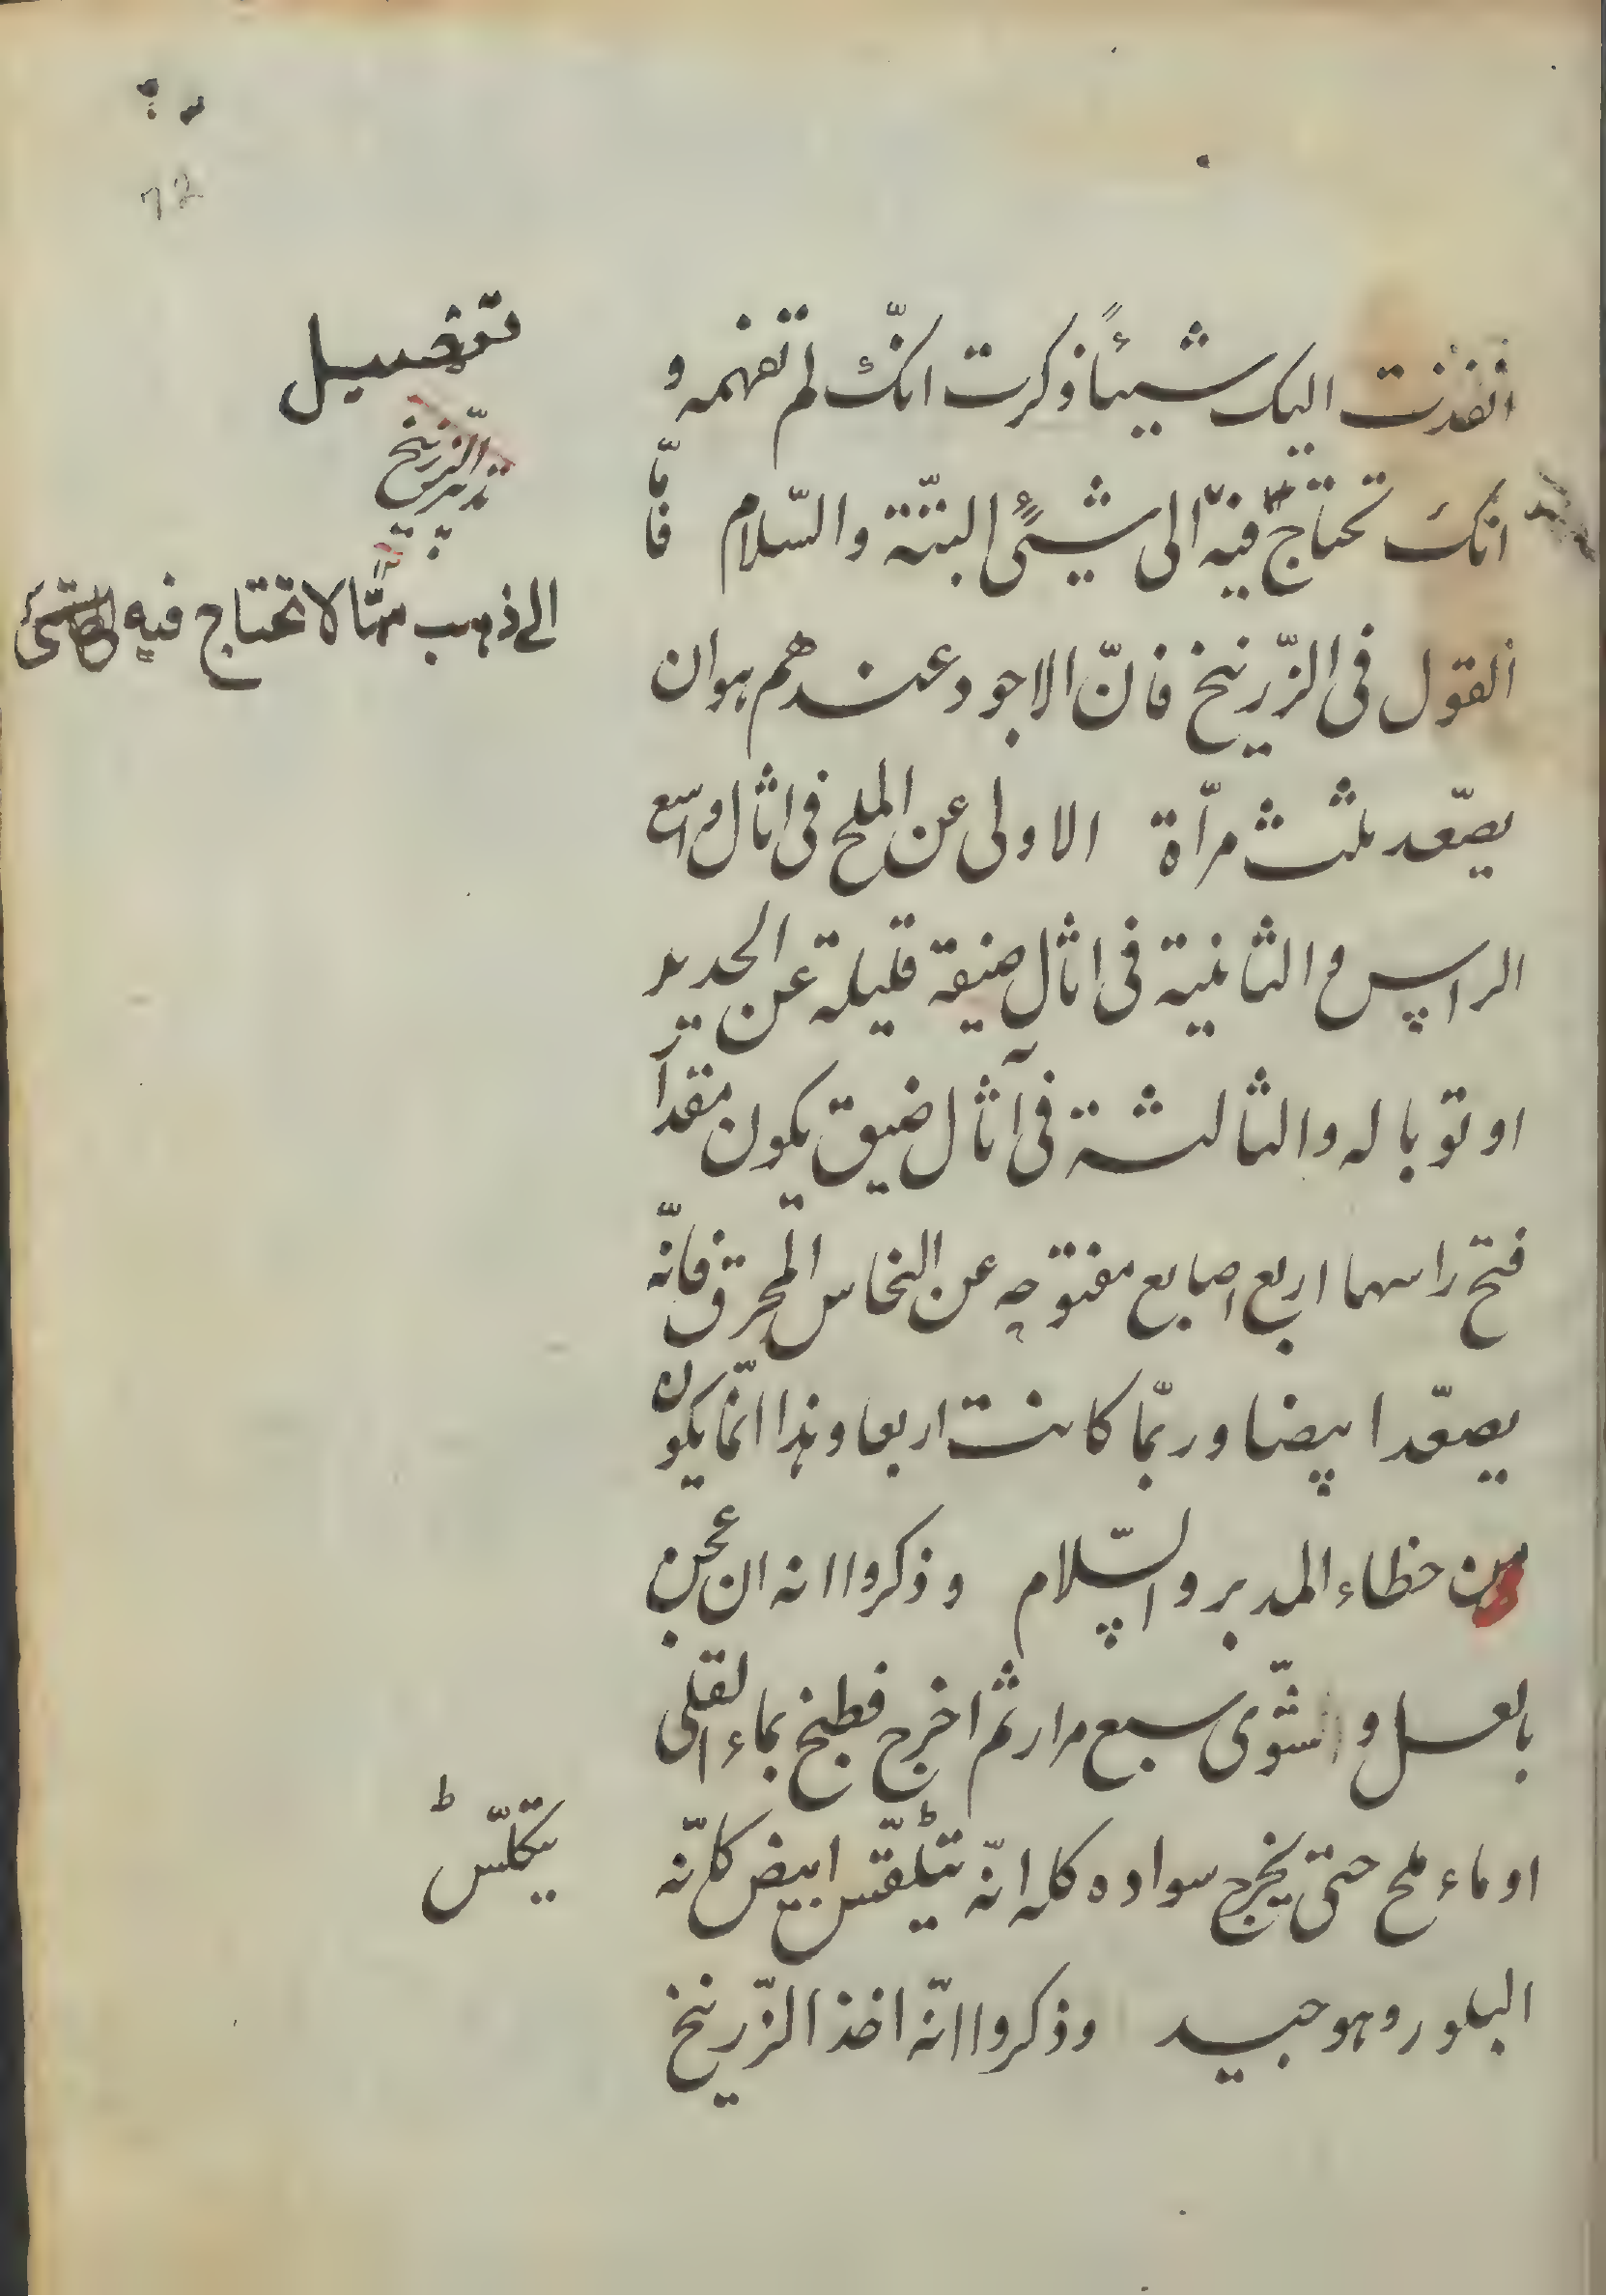 72
انفذت اليک شيئاً ذکرت انّک لم تفهمه و
انک تحتاج فيه الى شئ البتّة والسّلام فامّا
القول فى الزّرنيخ فانّ الاجود عندهم هوان
يصعّد ثلث مرّاة الاولى عن الملح فى اثال واسع
الراس و الثانية فى اثال ضيقة قليلة عن الحديد
او توباله والثالثة فى آثال ضيق يکون مقدا
فتح راسها اربع اصابع مفتوحه عن النحاس المحرق فانّه
يصعّد ابيضا وربّما کانت اربعا وهذا انّما يکون
من خطاء المدبر والسّلام وذکروا انه ان عجن
بالعسل و الشّوى سبع مرار ثم اخرج فطبخ بماء القلى
او ماء ملح حتى يخرج سواده کله انّه يتلّقس ابيض کانّه
البلور وهو جيد وذکروا انّه اخذ الزّرنيخ
تفصيل
تدبير الزّرنيخ
الے ذهب ممّا لا تحتاج فيه
يتکلّس ط